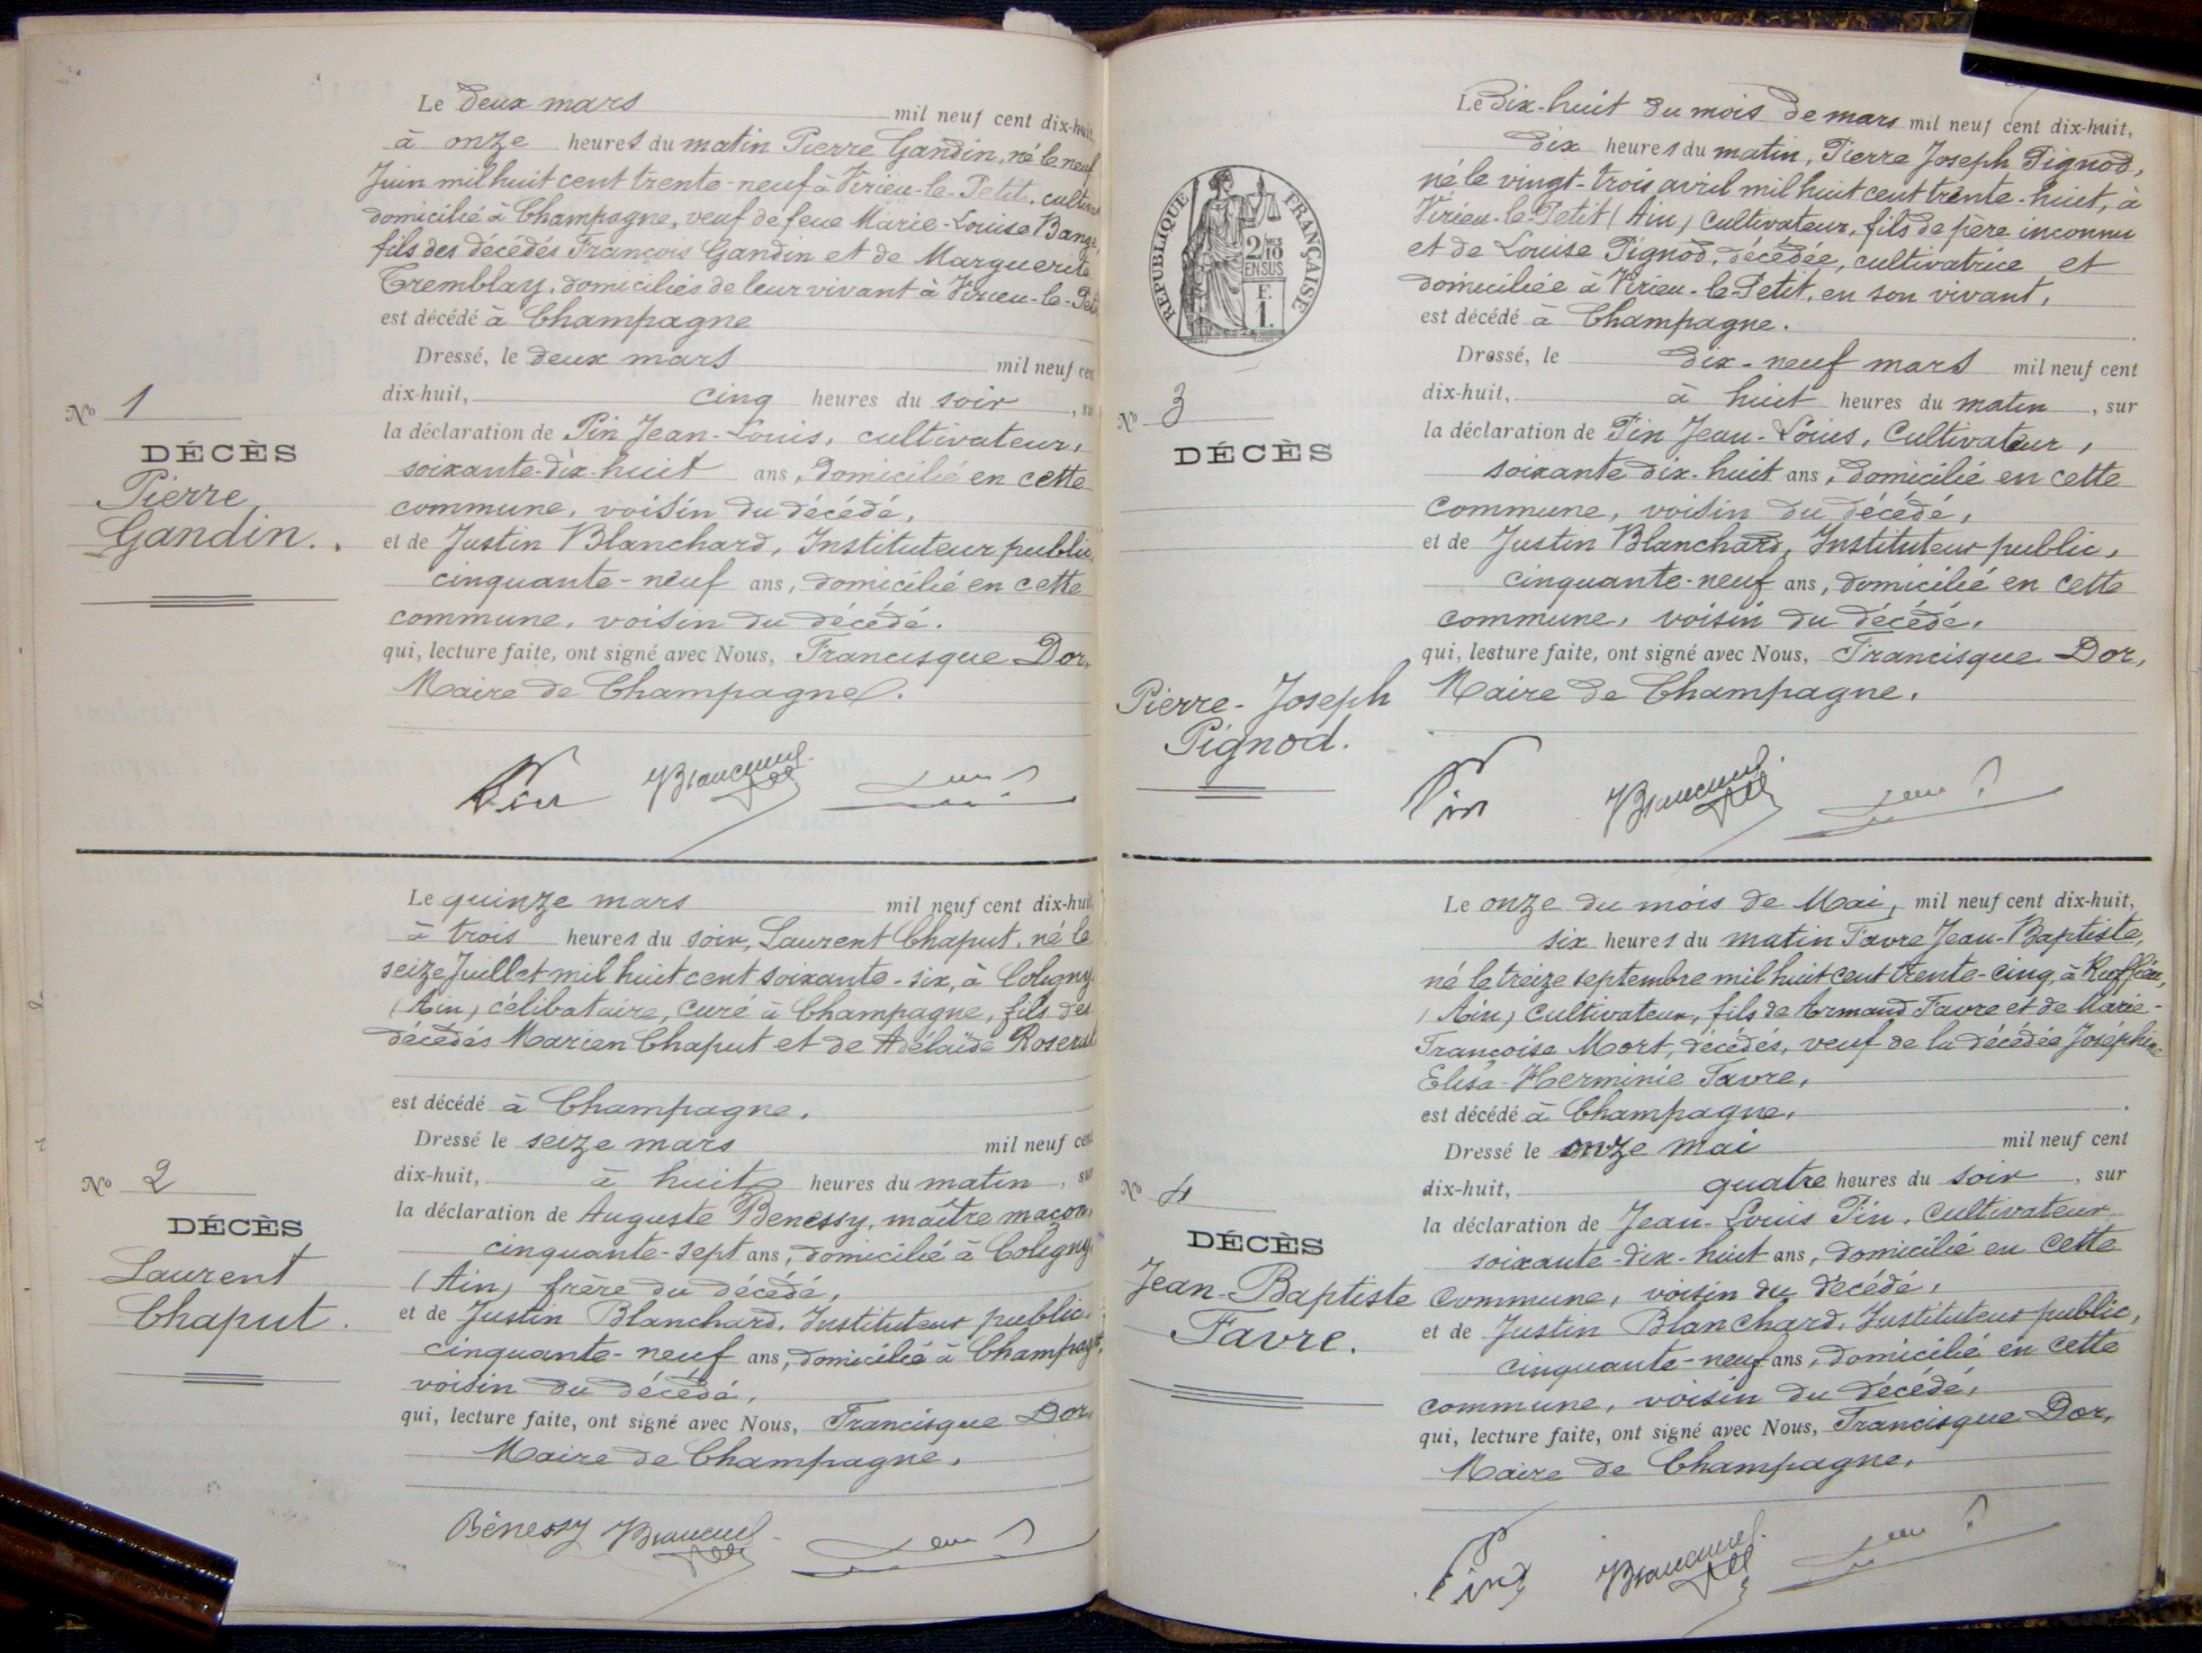 Le deux mars mil neuf cent dix-huit,
à onze heures du matin Pierre Gandin, né le neuf
Juin mil huit cent trente-neuf à Virieu-le-Petit, cultiva
domicilié à Champagne, veuf de feue Marie-Louise
fils des décédés François Gandin et de Marguerite
Tremblay, domiciliés de leur vivant à Virieu-le-Pet
est décédé à Champagne
Dressé, le deux mars mil neuf cent
dix-huit, cinq heures du soir, su
la déclaration de Pin Jean-Louis, cultivateur,
soixante-dix-huit ans, domicilié en cette
commune, voisin du décédé,
et de Justin Blanchard, Instituteur public,
cinquante-neuf ans, domicilié en cette
commune, voisin du décédé.
qui, lecture faite, ont signé avec Nous, Francisque Dor,
Maire de Champagne.
No 1
DÉCÈS
Pierre
Gandin.
Pin
Le quinze mars mil neuf cent dix-huit,
à trois heures du soir, Laurent Chaput, né le
seize Juillet mil huit cent soixante-six, à Coligny
(Ain) célibataire, curé à Champagne, fils des
décédés Marien Chaput et de Adélaïde
est décédé à Champagne.
Dressé le seize mars mil neuf cent
dix-huit, à huit heures du matin, sur
la déclaration de Auguste Benessy, maître maçon,
cinquante-sept ans, domicilié à Coligny
(Ain) frère du décédé,
et de Justin Blanchard, Instituteur public,
cinquante-neuf ans, domicilié à Champagne,
voisin du décédé,
qui, lecture faite, ont signé avec Nous, Francisque Dor,
Maire de Champagne.
No 2
DÉCÈS
Laurent
Chaput.
Bénessy
Le Dix-huit du mois de mars mil neuf cent dix-huit,
dix heures du matin, Pierre Joseph Pignod,
né le vingt-trois avril mil huit cent trente-huit, à
Virieu-le-Petit (Ain) cultivateur, fils de père inconnu
et de Louise Pignod, décédée, cultivatrice et
domiciliée à Virieu-le-Petit, en son vivant,
est décédé à Champagne.
Dressé, le dix-neuf mars mil neuf cent
dix-huit, à huit heures du matin, sur
la déclaration de Pin Jean-Louis, Cultivateur,
soixante dix-huit ans, domicilié en cette
commune, voisin du décédé,
et de Justin Blanchard, Instituteur public,
cinquante-neuf ans, domicilié en cette
commune, voisin du décédé,
qui, lecture faite, ont signé avec Nous, Francisque Dor,
Maire de Champagne.
RÉPUBLIQUE FRANÇAISE
2/10
EN SUS
F.
1.
No 3
DÉCÈS
Pierre-Joseph
Pignod.
Pin
Le onze du mois de Mai, mil neuf cent dix-huit,
six heures du matin Favre Jean-Baptiste,
né le treize septembre mil huit cent trente-cinq, à Ruffieu,
(Ain) Cultivateur, fils de Armand Favre et de Marie-
Françoise Mort, décédés, veuf de la décédée Joséphine
Elisa-Herminie Favre,
est décédé à Champagne.
Dressé le onze mai mil neuf cent
dix-huit, quatre heures du soir, sur
la déclaration de Jean-Louis Pin, Cultivateur
soixante-dix-huit ans, domicilié en cette
Commune, voisin du décédé,
et de Justin Blanchard, Instituteur public,
cinquante-neuf ans, domicilié en cette
commune, voisin du décédé,
qui, lecture faite, ont signé avec Nous, Francisque Dor,
Maire de Champagne.
No 4
DÉCÈS
Jean-Baptiste
Favre.
Pin